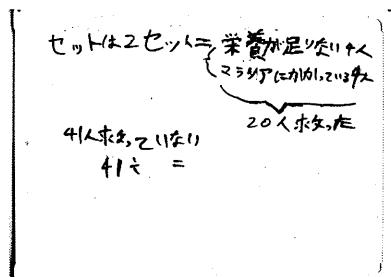 セットは2セット=栄養が足りない4人
マラリアにかかっている4人
20人求めた
41人求めっていない
41÷ =